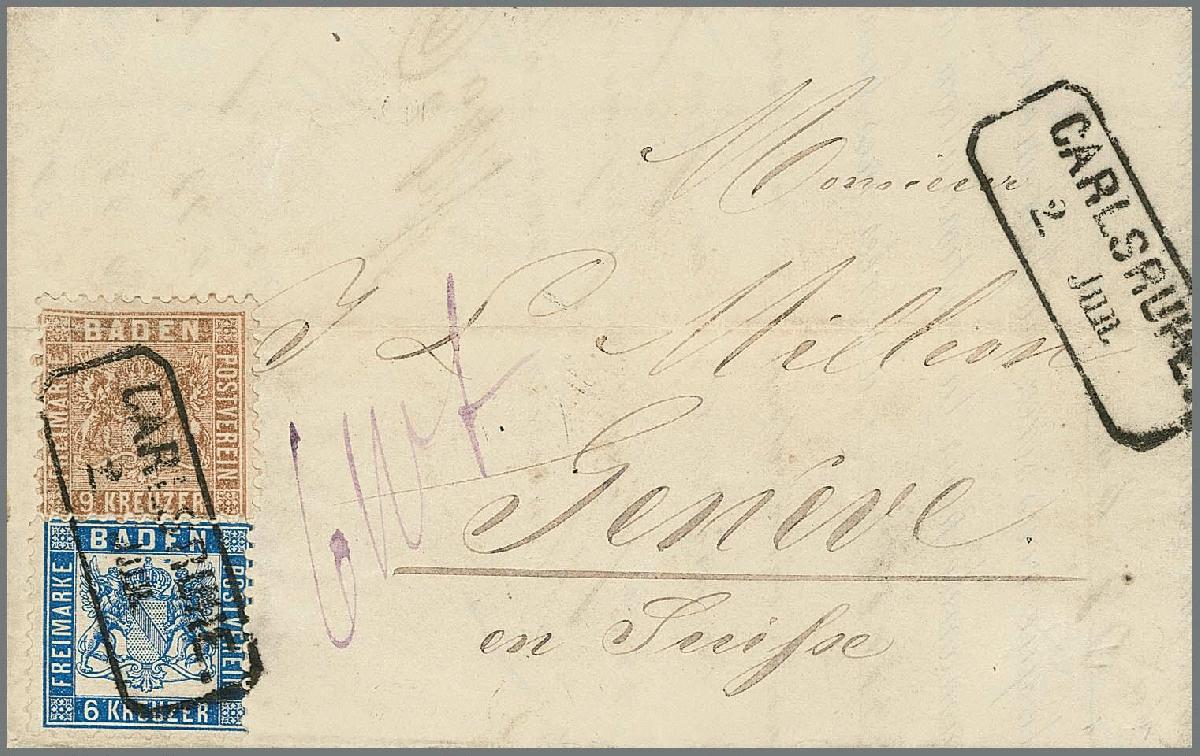 Monsieur
J L Million
Genève
en Suisse
CARLSRUHE
2 JUL
BADEN
FREIMARKE
POSTVEREIN
9 KREUZER
CARLSRUHE
2 JUL
BADEN
FREIMARKE
POSTVEREIN
6 KREUZER